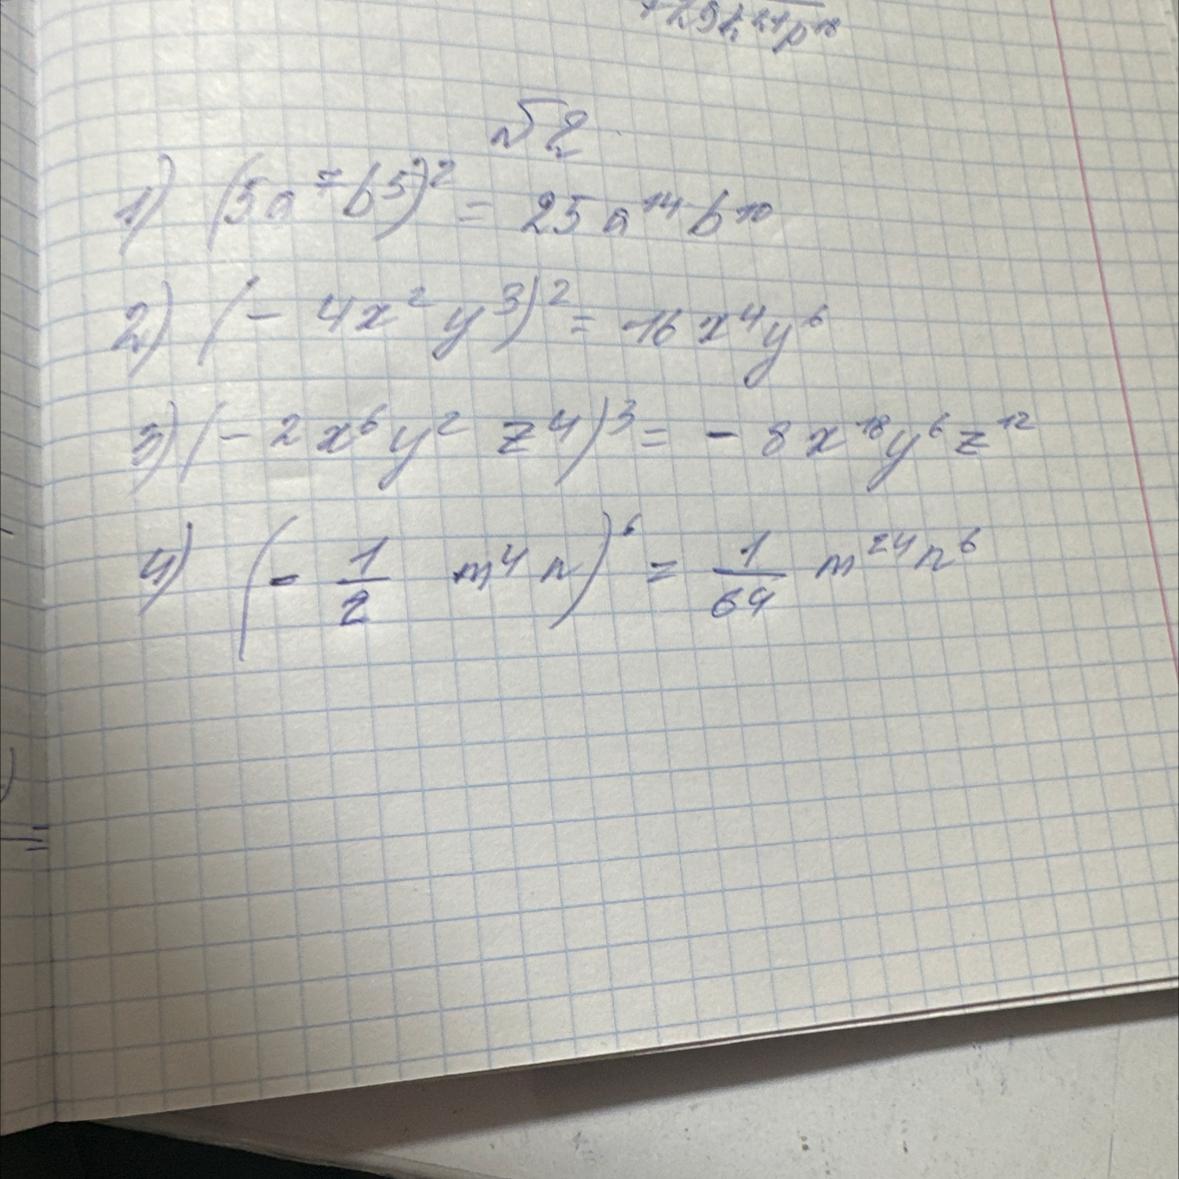 №2
1) (5a⁷b⁵)² = 25a¹⁴b¹⁰
2) (- 4x² y³)² = 16x⁴y⁶
3) (- 2x⁶y² z⁴)³ = - 8x¹⁸y⁶z¹²
4) (- 1/2 m⁴n)⁶ = 1/64 m²⁴n⁶